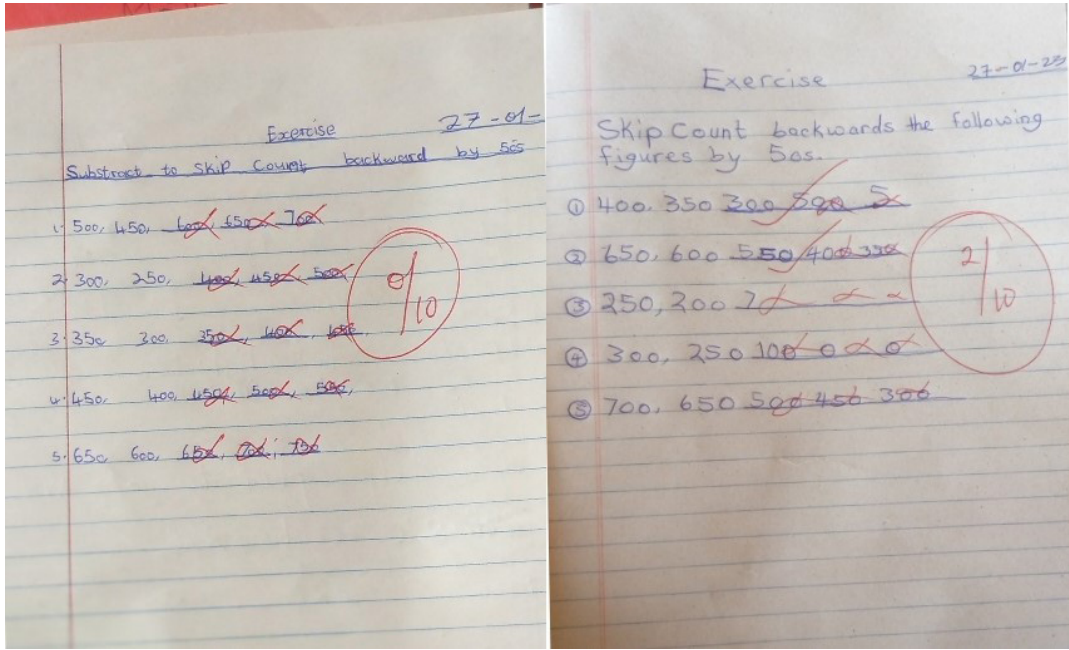 Exercise
27-01-
Substract to skip count backward by 50s
1. 500, 450, 600, 650, 700
2. 300, 250, 400, 450, 500
3. 350 300, 350, 400,
4. 450, 400, 450, 500, 550,
5. 650 600, 650, 700, 750
0/10
Exercise
27-01-23
Skip Count backwards the following
figures by 50s.
① 400, 350 300 500 5
② 650, 600 550 400 350
③ 250, 200
④ 300, 250 100 0 0 0
⑤ 700, 650 500 450 300
2/10